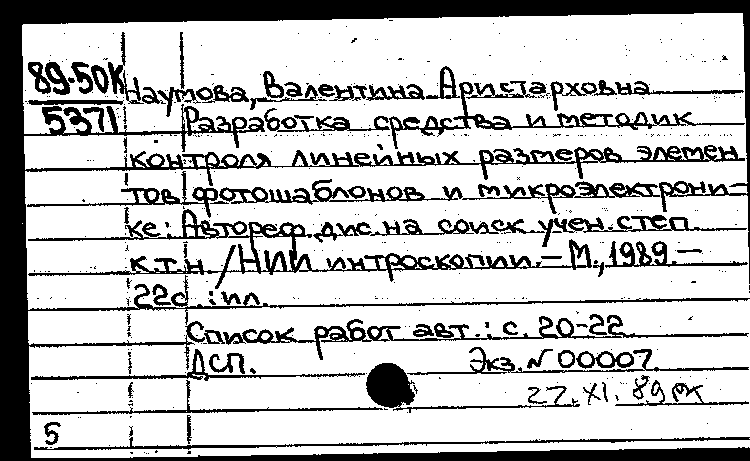 89-50К Наумова, Валентина Аристарховна
5371 Разработка средства и методик
контроля линейных размеров элемен
тов фотошаблонов и микроэлектрони-
ке: Автореф. дис. на соиск. учен. степ.
к.т.н. /НИИ интроскопии.-М., 1989.-
22с.: ил.
Список работ авт.: с. 20-22.
ДСП. Экз. N 00007.
27.XI.89
5